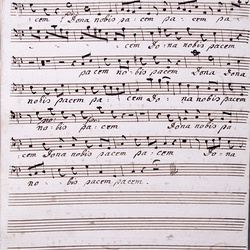 cem? Dona nobis pacem pa: cem pa:
cem Dona nobis pacem
pacem no: bis pacem Dona Dona
nobis pacem pa: cem Do: na nobis pacem
no: bis pa: cem Dona nobis pa:
cem Dona nobis pacem pa: cem Do: na
no: bis pacem pacem.